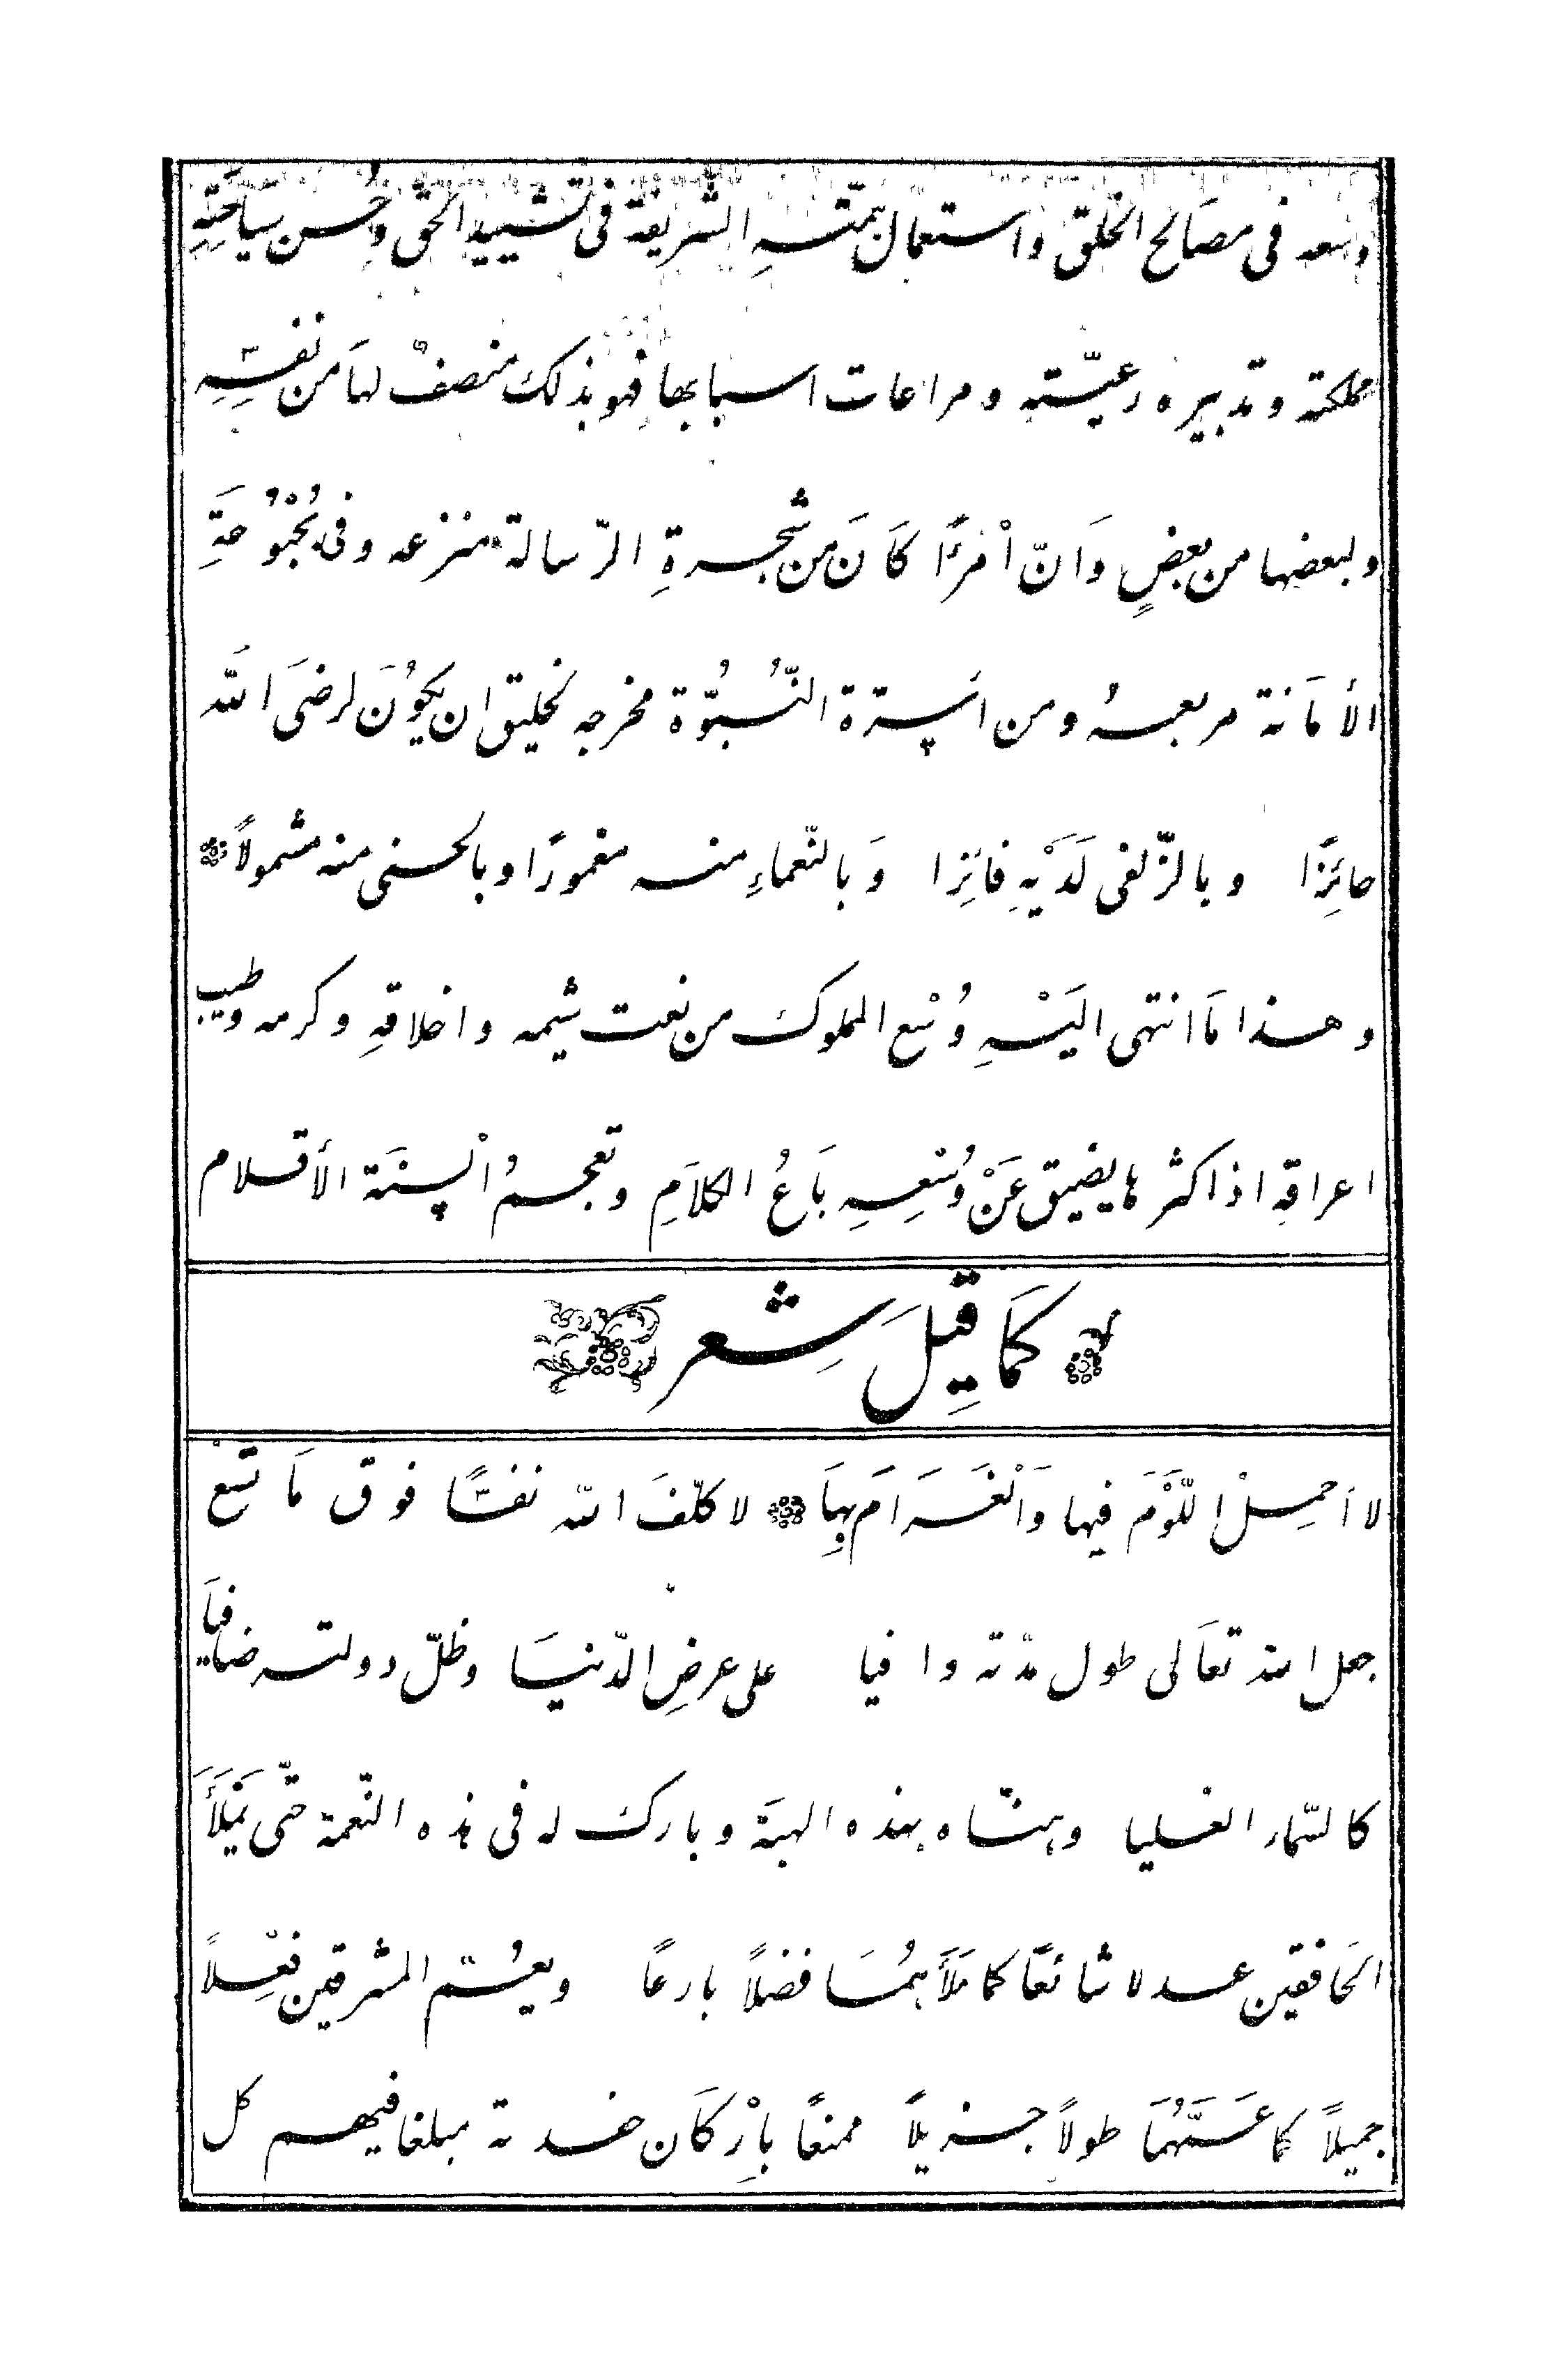 وسعه فى مصَالح الخلق واستعمال همّته الشريفة فى تشييد الحق وحُسن سِيَاحَتِهِ
مملكته وتدبيره رعيّته ومراعات اسبابها فهو بذلك منصفْ لهَا من نفسِهِ
ولبعضها من بعضٍ وَانّ امْرءًا كَانَ من شجرةِ الرّسالة منزعه وفى بُحْبُوُحَةِ
الأمَانة مربعهُ ومن اسَرّة النُّبُوّة مخرجه لخليق ان يكوُنَ لرضىَ اللَّه
حائِزًا وبالزّلفى لَدَيْهِ فائِزا وَبالنّعماءِ منه مغمورًا وبالحسنى منه مشمولاً
وهذا مَا انتهى اليَسْهِ وُسْع المملوك من نعت شيمه واخلاقهِ وكرمه وطيب
اعراقه اذ اكثرها يضيق عَنْ وُسْعِهِ بَاعُ الكلاَمِ وتعجمُ الْسِنَة الأقلام
كَمَا قِيلَ شِعر
لا احمِلْ اللَّوْمَ فيها وَالْغَرَامَ بِهَا لا كلّفَ اللّه نفسًا فوق مَا تسعْ
جعل اللّه تعَالى طول مدّته وافيا على عرضِ الدّنيَا وظلّ دولته ضافيَا
كالسّماء العليا وهنّاه بهذه الهبَة وبارك له فى هذه النّعمة حتّى يَمْلَأَ
الخَافقين عدلا شائعًا كما مَلَأَهُمَا فضلاً بارعًا ويعُمّ المشرقين فعْلاً
جميلاً كما عَمَّهُمَا طولاً جزيلاً ممنعًا بِاْركَان خدمته مبلغا فيهم كل